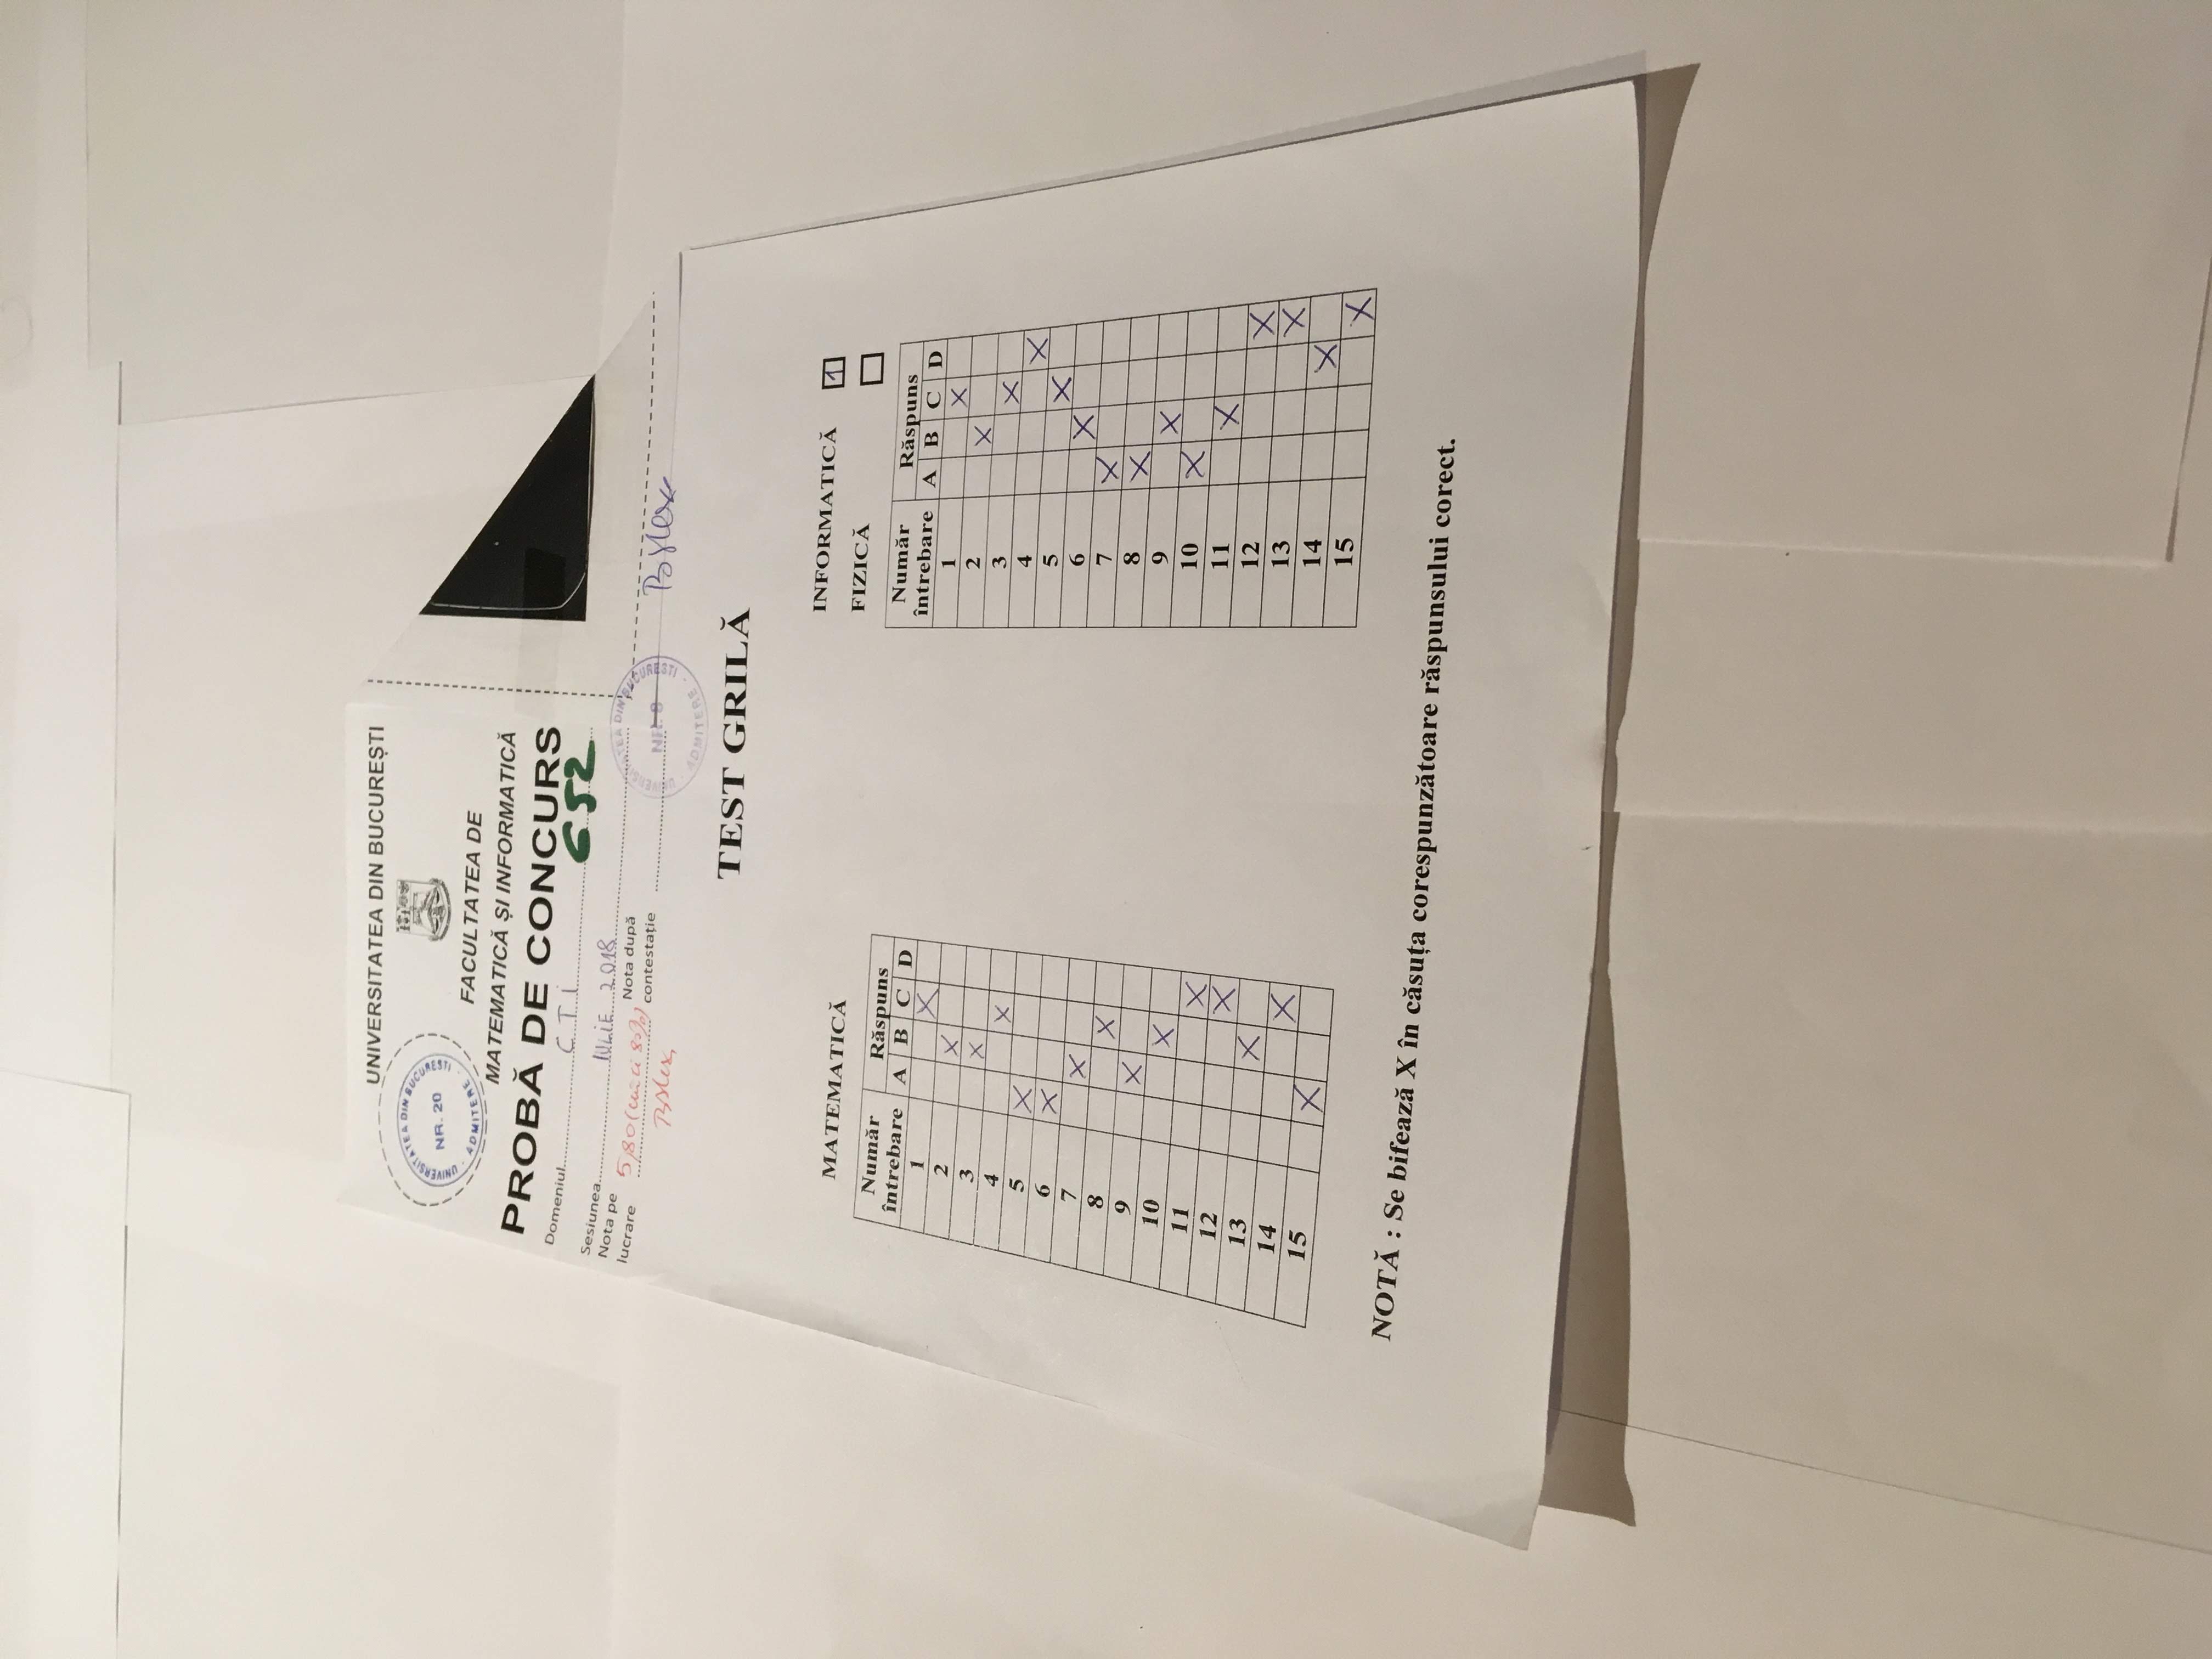 UNIVERSITATEA DIN BUCUREȘTI
UNIVERSITATEA DIN BUCUREȘTI
NR. 20
ADMITERE
FACULTATEA DE
MATEMATICĂ ȘI INFORMATICĂ
PROBĂ DE CONCURS
Domeniul CTI
652
Sesiunea IULIE 2018
Nota pe lucrare 5,80 (cinci 80%)
Nota după contestație
UNIVERSITATEA DIN BUCUREȘTI
NR. 8
ADMITERE
TEST GRILĂ
MATEMATICĂ
Număr întrebare Răspuns
A B C D
1 X
2 X
3 X
4 X
5 X
6 X
7 X
8 X
9 X
10 X
11 X
12 X
13 X
14 X
15 X
INFORMATICĂ 1
FIZICĂ
Număr întrebare Răspuns
A B C D
1 X
2 X
3 X
4 X
5 X
6 X
7 X
8 X
9 X
10 X
11 X
12 X
13 X
14 X
15 X
NOTĂ : Se bifează X în căsuța corespunzătoare răspunsului corect.